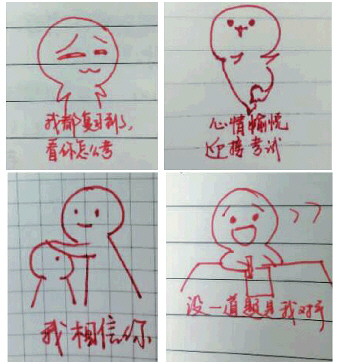 我都复习到了，
看你怎么考
心情愉悦
迎接考试
我相信你
没一道题是我对手